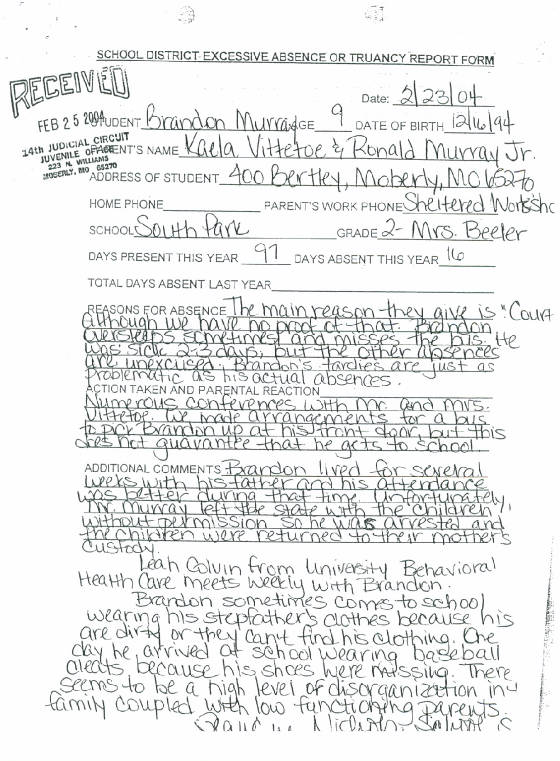 SCHOOL DISTRICT EXCESSIVE ABSENCE OR TRUANCY REPORT FORM
RECEIVED
FEB 25 2004
14th JUDICIAL CIRCUIT
JUVENILE OFFICE
223 N. WILLIAMS
MOBERLY, MO 65270
Date: 2/23/04
STUDENT Brandon Murray AGE 9 DATE OF BIRTH 12/16/94
PARENT'S NAME Kaela Vittetoe & Ronald Murray Jr.
ADDRESS OF STUDENT 400 Bertley, Moberly, MO 65270
HOME PHONE PARENT'S WORK PHONE Sheltered Worksho
SCHOOL South Park GRADE 2- Mrs. Beeler
DAYS PRESENT THIS YEAR 97 DAYS ABSENT THIS YEAR 16
TOTAL DAYS ABSENT LAST YEAR
REASONS FOR ABSENCE The main reason they give is "Court
although we have no proof of that. Brandon
oversleeps sometimes and misses the bus. He
was sick 2-3 days, but the other absences
are unexcused. Brandon's tardies are just as
problematic as his actual absences.
ACTION TAKEN AND PARENTAL REACTION
Numerous conferences with Mr. and Mrs.
Vittetoe. We made arrangements for a bus
to pick Brandon up at his front door, but this
does not guarantee that he gets to school.
ADDITIONAL COMMENTS Brandon lived for several
weeks with his father and his attendance
was better during that time. Unfortunately,
Mr. Murray left the state with the children
without permission so he was arrested and
the children were returned to their mother's
custody.
Leah Colvin from University Behavioral
Health Care meets weekly with Brandon.
Brandon sometimes comes to school
wearing his stepfather's clothes because his
are dirty or they can't find his clothing. One
day he arrived at school wearing baseball
cleats because his shoes were missing. There
seems to be a high level of disorganization in
family coupled with low functioning parents.